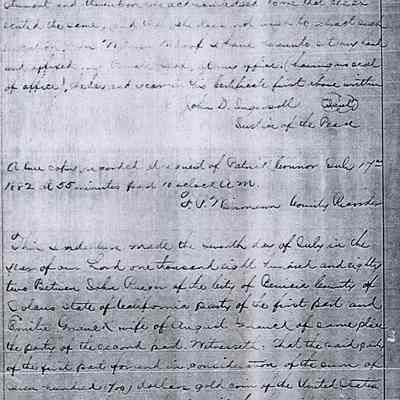 strument and thereupon she acknowledged to me that she ex-
ecuted the same, and that she does not wish to retract such
execution. In Witness Whereof I have hereunto set my hand
and affixed my Private Seal, at my office, (having no seal
of office), the day and year in this Certificate first above written
John D. (Seal)
Justice of the Peace
A true copy, recorded at request of Connor July 17th
1882 at 55 minutes past 10 o'clock A.M.
County Recorder
This Indenture made the day of July in the
year of our Lord one thousand eight hundred and eighty
two Between John of the city of Benicia County of
Solano State of California party of the first part and
Emilie wife of August of same place
the party of the second part. Witnesseth: That the said party
of the first part for and in consideration of the sum of
seven hundred (700) dollars gold coin of the United States